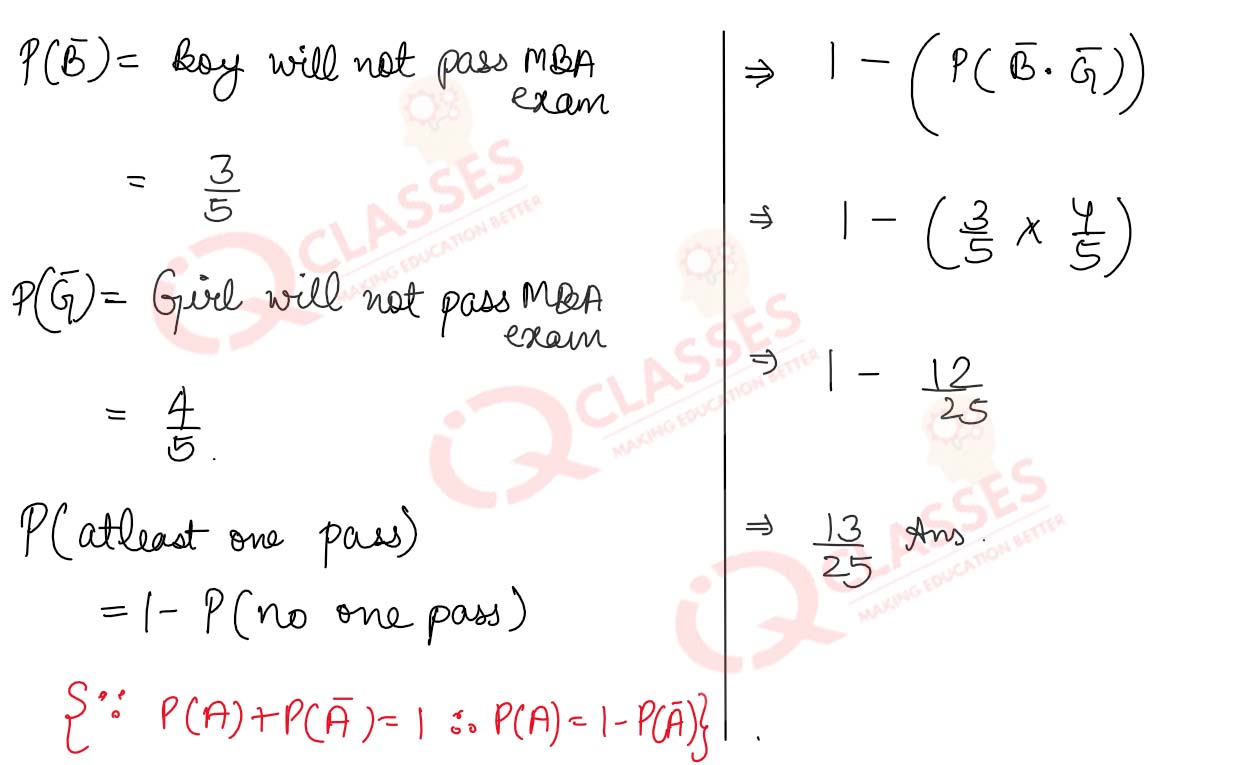 P(B̄) = Boy will not pass MBA
exam
= 3/5
P(Ḡ) = Girl will not pass MBA
exam
= 4/5.
P(atleast one pass)
= 1 - P(no one pass)
{∵ P(A)+P(Ā)=1 ∴ P(A)=1-P(Ā)}
⇒ 1 - (P(B̄·Ḡ))
⇒ 1 - (3/5 × 4/5)
⇒ 1 - 12/25
⇒ 13/25 Ans.
iQ CLASSES
MAKING EDUCATION BETTER
iQ CLASSES
MAKING EDUCATION BETTER
iQ CLASSES
MAKING EDUCATION BETTER